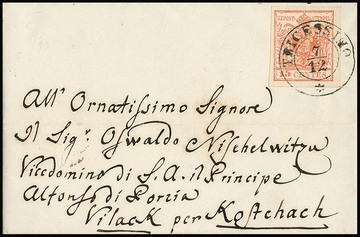 TRICESIMO
7
12
All' Ornatissimo Signore
Il Sigr. Oswaldo Nischelwitzu
Vicedomino di S. A. il Principe
Alfonso di Porzia
Villack per Kostchach